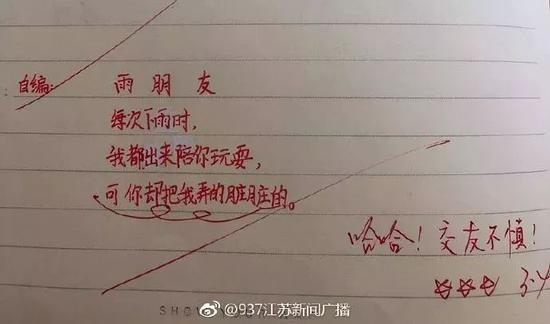 自编: 雨朋友
每次下雨时,
我都出来陪你玩耍,
可你却把我弄的脏脏的。
哈哈!交友不慎!
☆☆☆ 3.4
@937江苏新闻广播